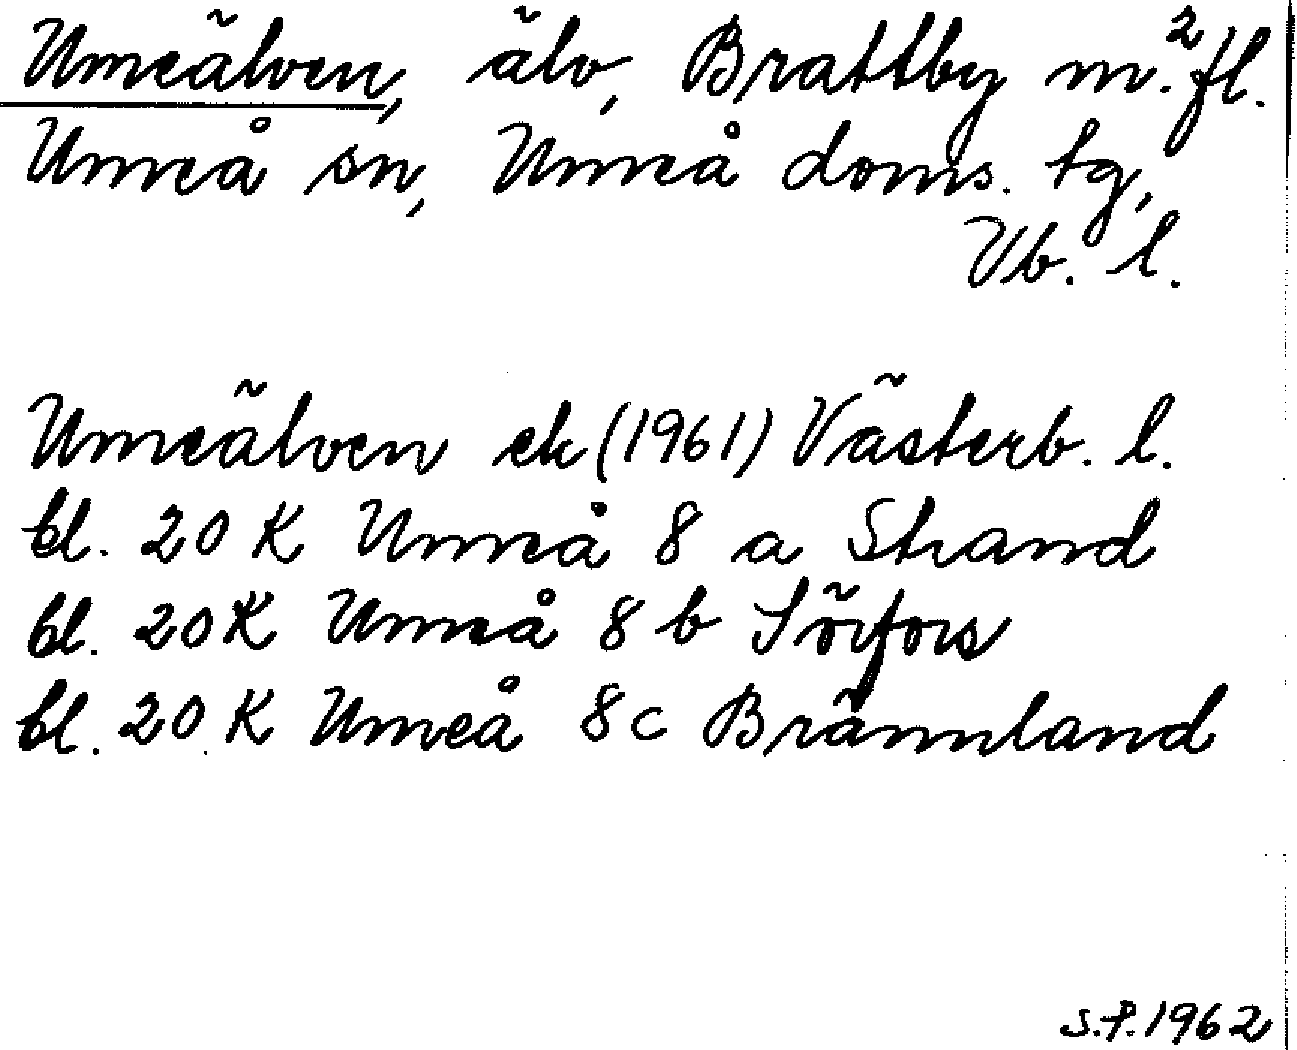 Umeälven, älv, Brattby m.² fl.
Umeå sn, Umeå doms. tg,
Vb. l.
Umeälven ek (1961) Västerb. l.
bl. 20 K Umeå 8 a Strand
bl. 20 K Umeå 8 b Sörfors
bl. 20 K Umeå 8 c Brännland
S.P. 1962